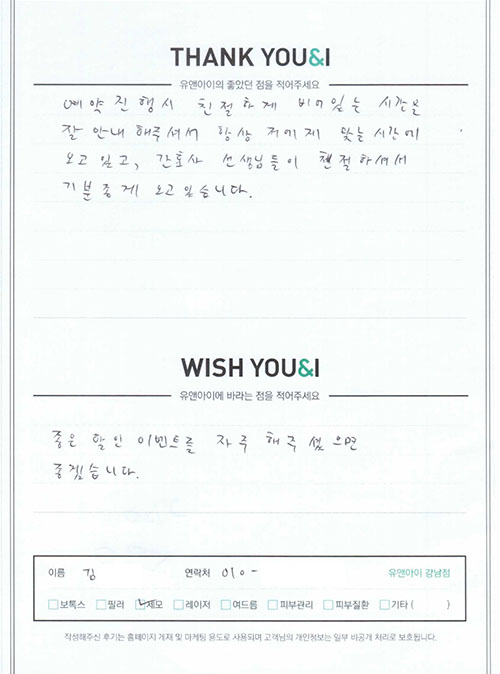 THANK YOU&I
유앤아이의 좋았던 점을 적어주세요
예약 진행시 친절하게 비어있는 시간을
잘 안내 해주셔서 항상 저에게 맞는 시간에
오고 있고, 간호사 선생님들이 친절하셔서
기분좋게 오고있습니다.
WISH YOU&I
유앤아이에 바라는 점을 적어주세요
좋은 할인 이벤트를 자주 해주셨으면
좋겠습니다.
이름 김 연락처 010- 유앤아이 강남점
보톡스 필러 제모 레이저 여드름 피부관리 피부질환 기타 ( )
작성해주신 후기는 홈페이지 게재 및 마케팅 용도로 사용되며 고객님의 개인정보는 일부 비공개 처리로 보호됩니다.